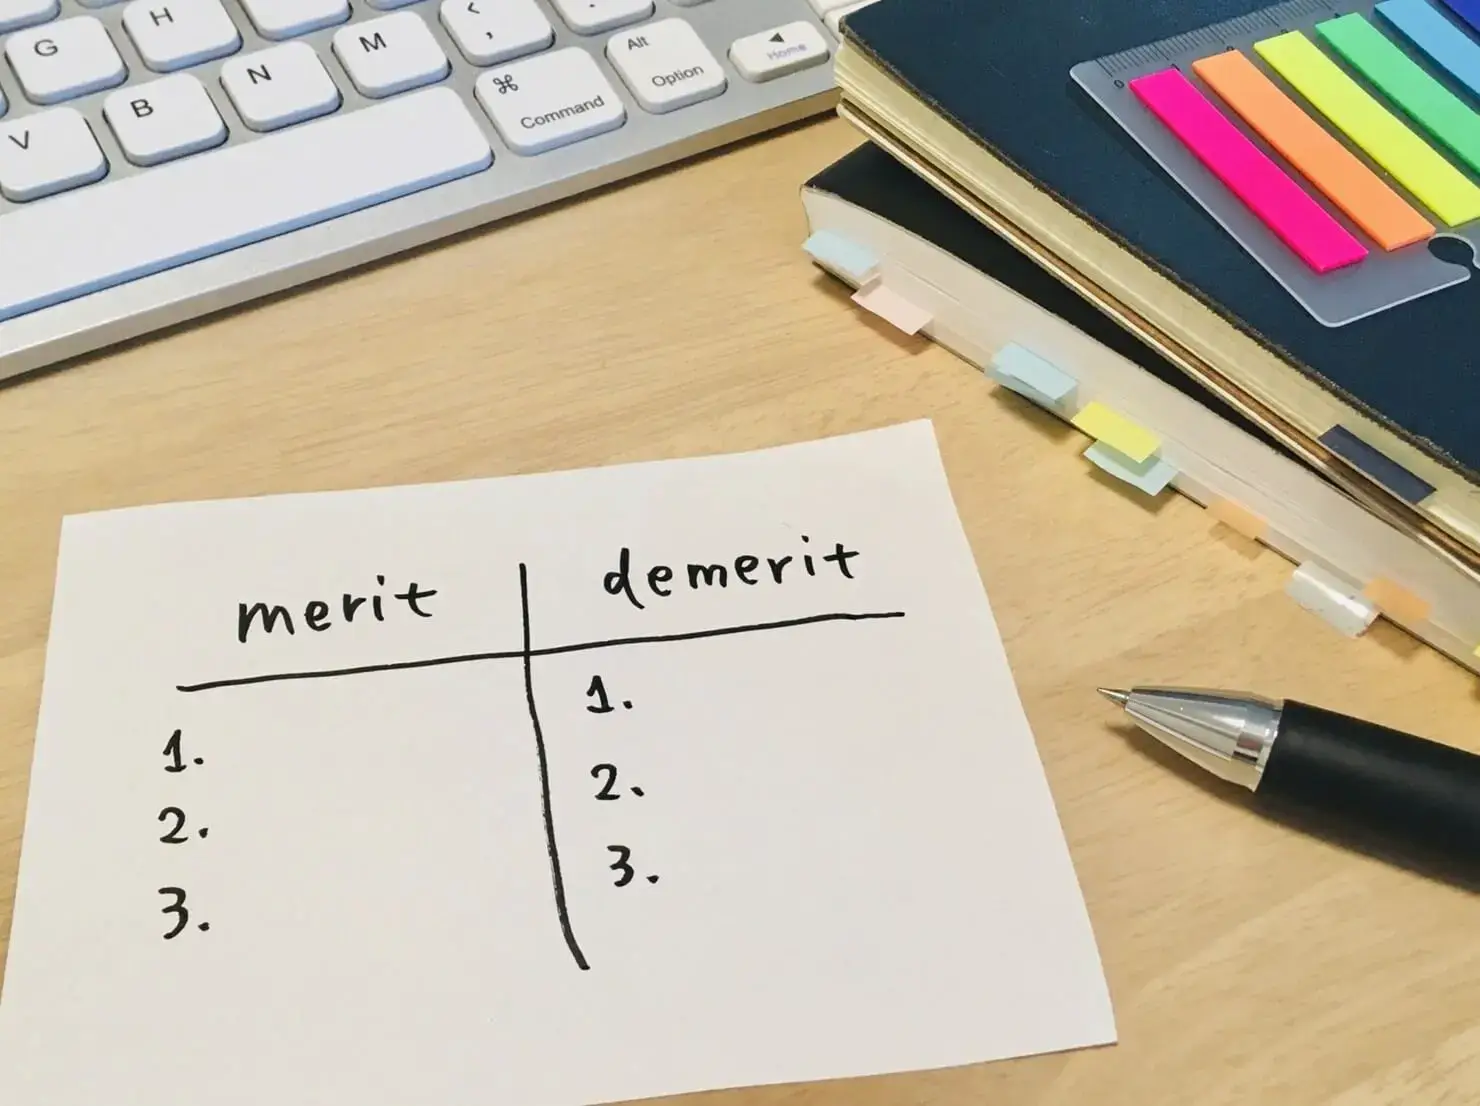 G H
V B N M < ,
⌘ Command
Alt Option
◀ Home
merit demerit
1. 1.
2. 2.
3. 3.